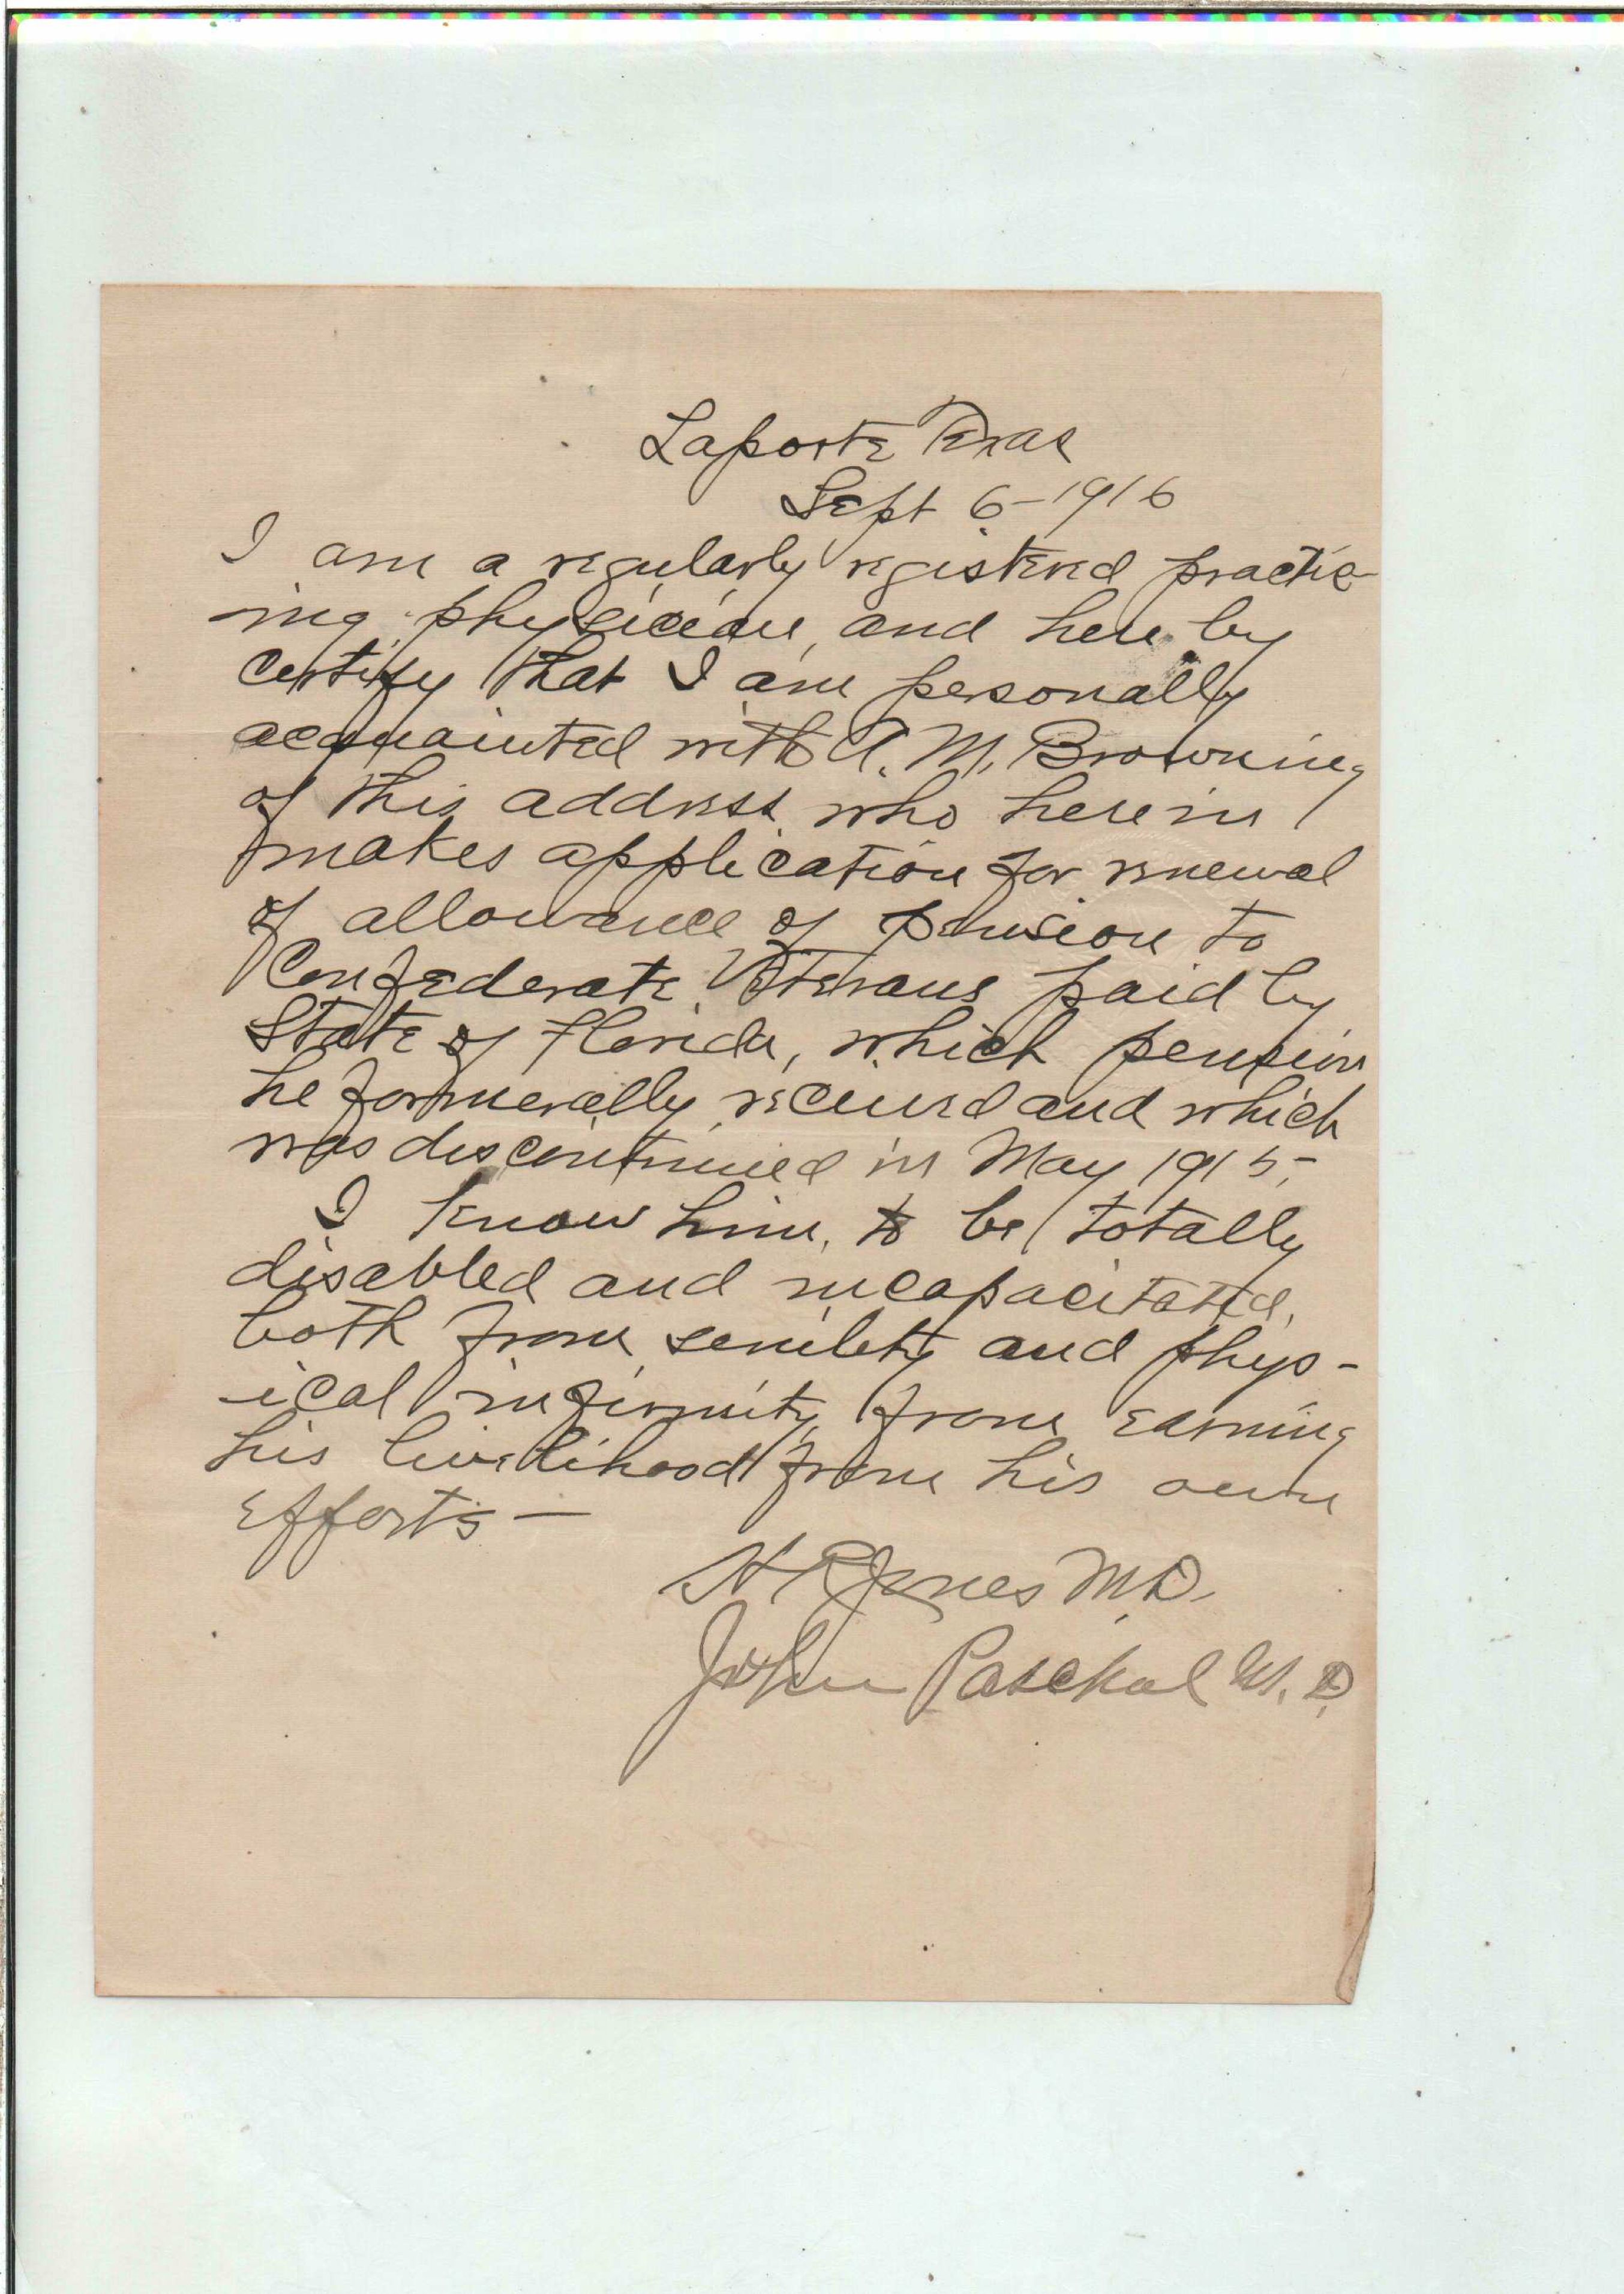 Laporte Texas
Sept 6-1916
I am a regularly registered practic-
-ing physician, and here by
certify that I am personally
acquainted with A. M. Browning
of this address who herein
makes application for renewal
of allowance of pension to
Confederate Veterans paid by
State of Florida, which pension
he formerally received and which
was discontinued in May 1915,-
I know him, to be totally
disabled and incapacitated,
both from senility and phys-
-ical infirmity from earning
his livelihood from his own
efforts -
Jones M.D.
John Paschal M.D.